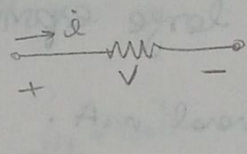 i
+ V −